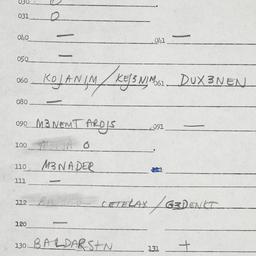 031 O
040 — 041 —
050 —
060 KOJANJM / KEJ3NJM 061 DUX3NEN
080 —
090 M3NEMT ARDJS 091 —
100 O
110 M3NADER
111 —
112 CETELAX / G3DENKT
120 —
130 BALDARS+N 131 +